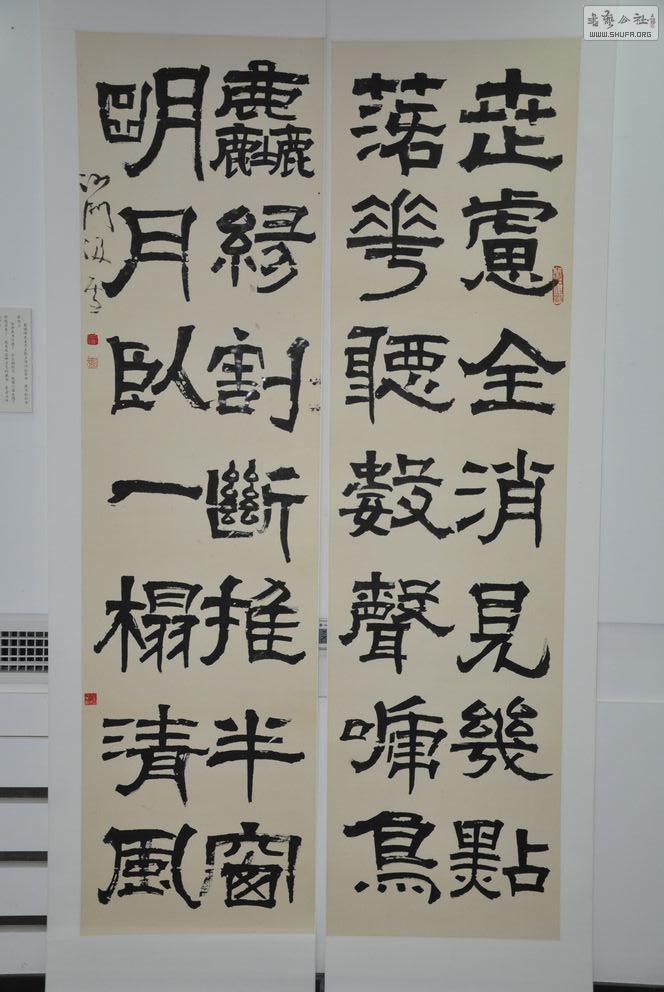 世慮全消見幾點
落華聽數聲啼鳥
塵緣割斷推半窗
朙月臥一榻清風
沙門
書藝公社
WWW.SHUFA.ORG